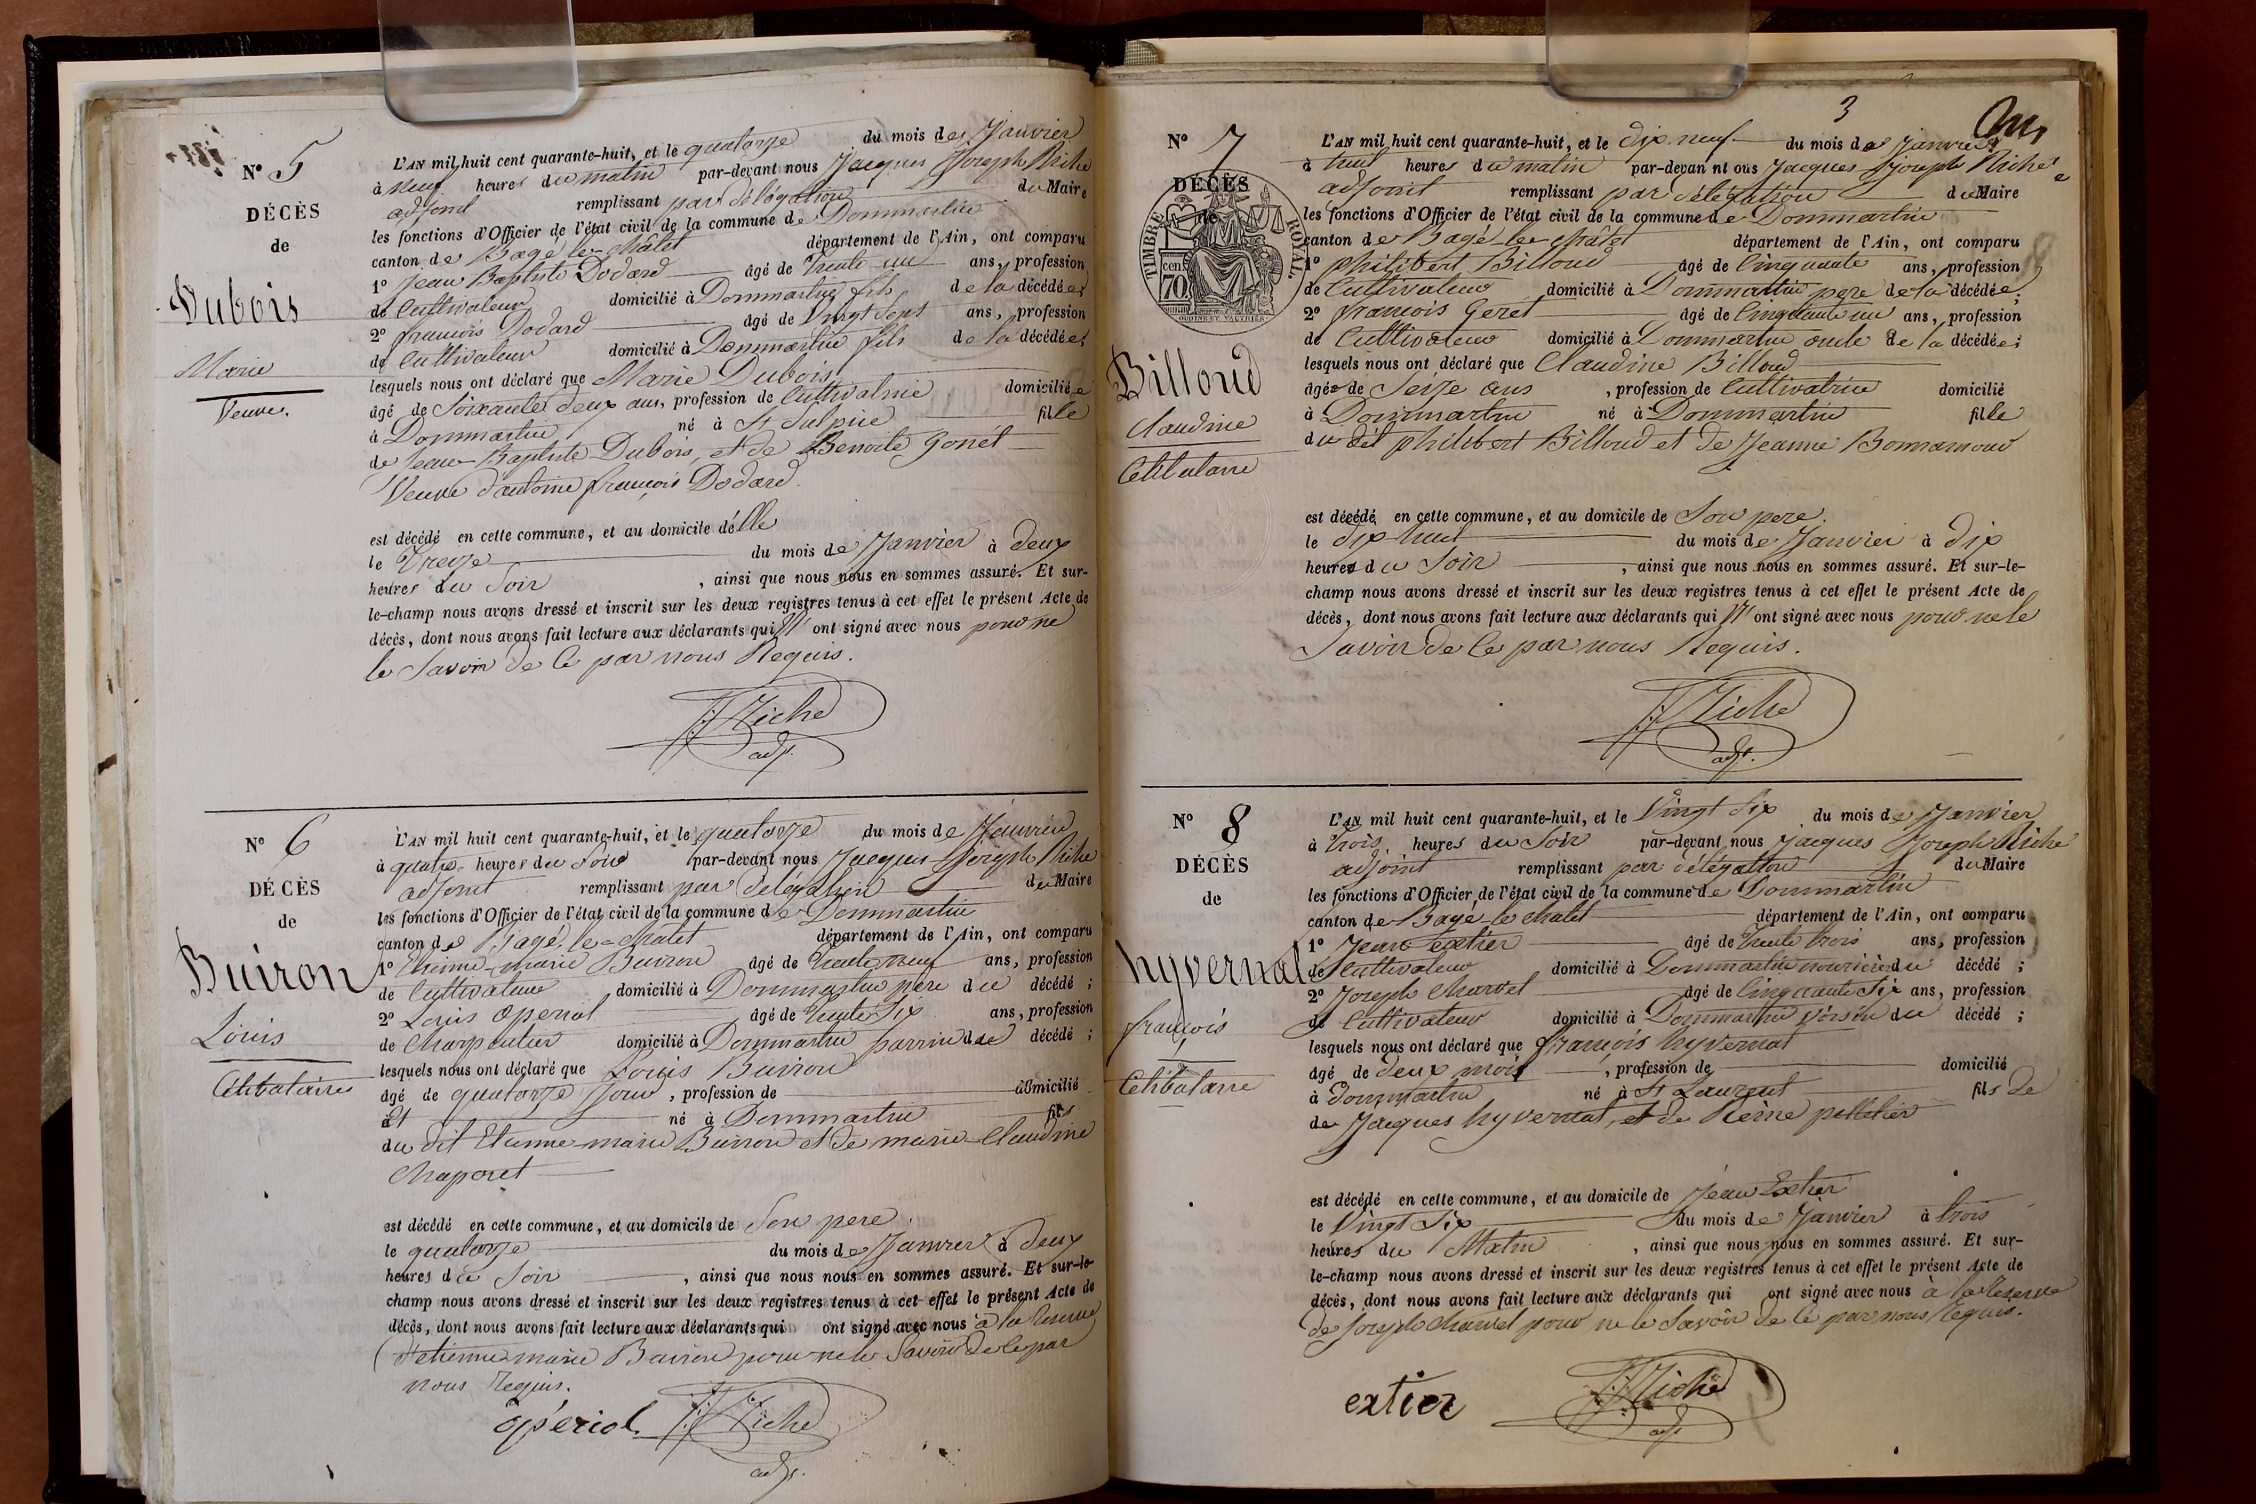 N° 5
DÉCÈS
de
Dubois
Marie
Veuve.
L'AN mil huit cent quarante-huit, et le quatorze du mois de Janvier
à neuf heures du matin par-devant nous Jacques Joseph Riche
adjoint remplissant par délégation du Maire
les fonctions d'Officier de l'état civil de la commune de Dommartin
canton de Bagé le châtel département de l'Ain, ont comparu
1° Jean Baptiste Dodard âgé de trente un ans, profession
de Cultivateur domicilié à Dommartin fils de la décédée;
2° françois Dodard âgé de Vingt Sept ans, profession
de Cultivateur domicilié à Dommartin fils de la décédée;
lesquels nous ont déclaré que Marie Dubois
âgé de Soixante deux ans, profession de Cultivatrice domiciliée
à Dommartin né à St Sulpice fille
de Jean-Baptiste Dubois, et de Benoite Gonet
Veuve d'antoine françois Dodard.
est décédé en cette commune, et au domicile d'elle
le Treize du mois de Janvier à deux
heures du Soir, ainsi que nous nous en sommes assuré. Et sur-
le-champ nous avons dressé et inscrit sur les deux registres tenus à cet effet le présent Acte de
décès, dont nous avons fait lecture aux déclarants qui n' ont signé avec nous pour ne
le Savoir de ce par nous Requis.
JJ Riche
adj.
N° 6
DÉCÈS
de
Buiron
Louis
Célibataire
L'AN mil huit cent quarante-huit, et le quatorze du mois de Janvier
à quatre heures du Soir par-devant nous Jacques Joseph Riche
adjoint remplissant par délégation du Maire
les fonctions d'Officier de l'état civil de la commune de Dommartin
canton de Bagé-le-châtel département de l'Ain, ont comparu
1° Etienne-marie Buiron âgé de trente neuf ans, profession
de Cultivateur domicilié à Dommartin père du décédé;
2° Louis Operiol âgé de trente Six ans, profession
de Charpentier domicilié à Dommartin parrin du décédé;
lesquels nous ont déclaré que Louis Buiron
âgé de quatorze Jour, profession de domicilié
à né à Dommartin fils
du dit Etienne-marie Buiron et de marie-Claudine
Chaporet
est décédé en cette commune, et au domicile de Son pere.
le quatorze du mois de Janvier à deux
heures du Soir, ainsi que nous nous en sommes assuré. Et sur-le-
champ nous avons dressé et inscrit sur les deux registres tenus à cet effet le présent Acte de
décès, dont nous avons fait lecture aux déclarants qui ont signé avec nous à la
d'etienne marie Buiron pour ne le Savoir de ce par
nous Requis.
opériol. JJ Riche
adj.
3
N° 7
DÉCÈS
de
TIMBRE ROYAL.
cen. 70
Billoud
Claudine
Célibataire
L'AN mil huit cent quarante-huit, et le dix-neuf du mois de Janvier
à huit heures du matin par-devan nt ous Jacques Joseph Riche
adjoint remplissant par délégation du Maire
les fonctions d'Officier de l'état civil de la commune de Dommartin
canton de Bagé-le-châtel département de l'Ain, ont comparu
1° philibert Billoud âgé de Cinquante ans, profession
de Cultivateur domicilié à Dommartin pere de la décédée;
2° françois Geret âgé de Cinquante un ans, profession
de Cultivateur domicilié à Dommartin oncle de la décédée;
lesquels nous ont déclaré que Claudine Billoud
âgée de Seize ans, profession de Cultivatrice domicilié
à Dommartin né à Dommartin fille
du dit philibert Billoud et de Jeanne Bonnamour
est décédé en cette commune, et au domicile de Son pere.
le dix huit du mois de Janvier à dix
heures du Soir, ainsi que nous nous en sommes assuré. Et sur-le-
champ nous avons dressé et inscrit sur les deux registres tenus à cet effet le présent Acte de
décès, dont nous avons fait lecture aux déclarants qui n' ont signé avec nous pour ne le
Savoir de ce par nous Requis.
JJ Riche
adj.
N° 8
DÉCÈS
de
hyvernat
françois
Célibataire
L'AN mil huit cent quarante-huit, et le Vingt Six du mois de Janvier
à trois heures du Soir par-devant nous Jacques Joseph Riche
adjoint remplissant par délégation du Maire
les fonctions d'Officier de l'état civil de la commune de Dommartin
canton de Bagé-le-châtel département de l'Ain, ont comparu
1° Jean extier âgé de trente trois ans, profession
de Cultivateur domicilié à Dommartin nouricier du décédé;
2° Joseph Charvet âgé de Cinquante Six ans, profession
de Cultivateur domicilié à Dommartin Voisin du décédé;
lesquels nous ont déclaré que françois hyvernat
âgé de deux mois, profession de domicilié
à Dommartin né à St Laurent fils de
de Jacques hyvernat, et de Reine pelletier
est décédé en cette commune, et au domicile de Jean Extier
le Vingt Six du mois de Janvier à trois
heures du Matin, ainsi que nous nous en sommes assuré. Et sur-
le-champ nous avons dressé et inscrit sur les deux registres tenus à cet effet le présent Acte de
décès, dont nous avons fait lecture aux déclarants qui ont signé avec nous à la Reserve
de Joseph Charvet pour ne le Savoir de ce par nous Requis.
extier JJ Riche
adj.